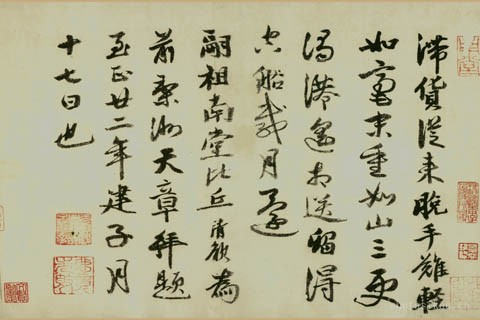 滞貨從来脫手難軽
如毫末重如山三更
港相送留得
空船載月還
嗣祖南堂比丘清欲為
前洲天章拜題
至正廿二年建子月
十七日也